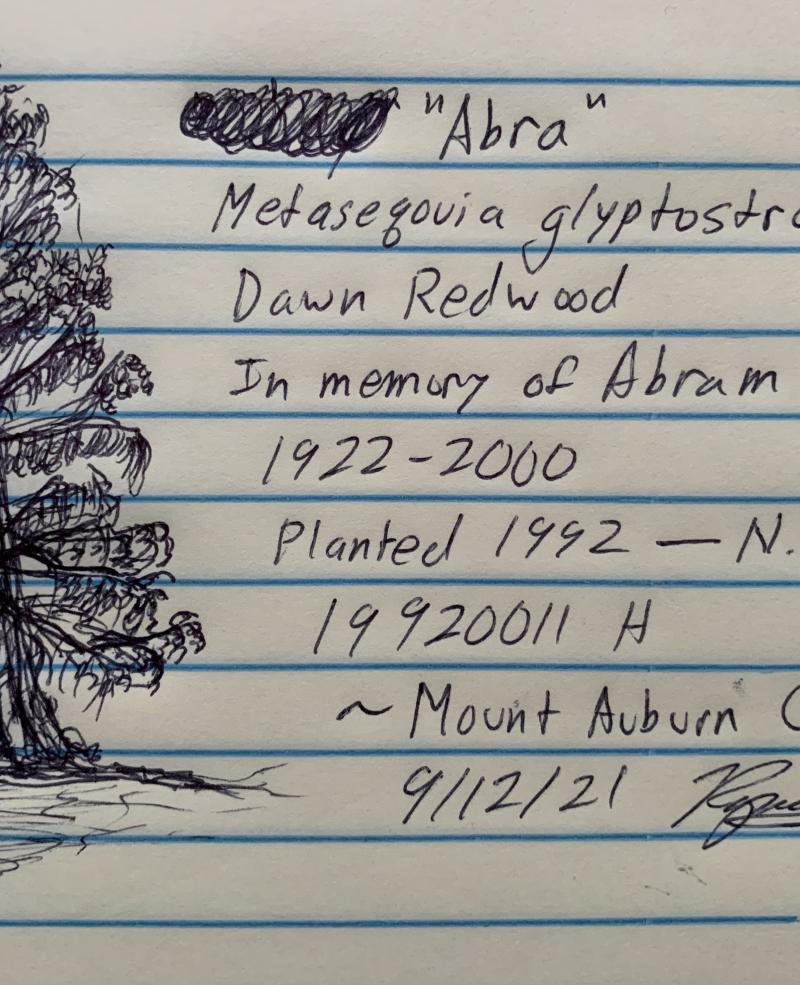 "Abra"
Metasequoia glyptostro
Dawn Redwood
In memory of Abram
1922-2000
Planted 1992 — N.
19920011 H
~ Mount Auburn C
9/12/21